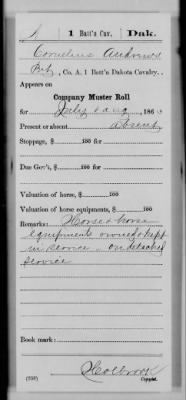 A 1 Batt's Cav. Dak.
Cornelius Andrews
Pvt, Co. A, 1 Batt'n Dakota Cavalry.
Appears on
Company Muster Roll
for July & Aug, 186
Present or absent Absent
Stoppage, $ 100 for
Due Gov't, $ 100 for
Valuation of horse, $ 100
Valuation of horse equipments, $ 100
Remarks: Horse & horse
equipments owned & kept
in service. on detached
service
Book mark:
Holbrook
(358) Copyist.